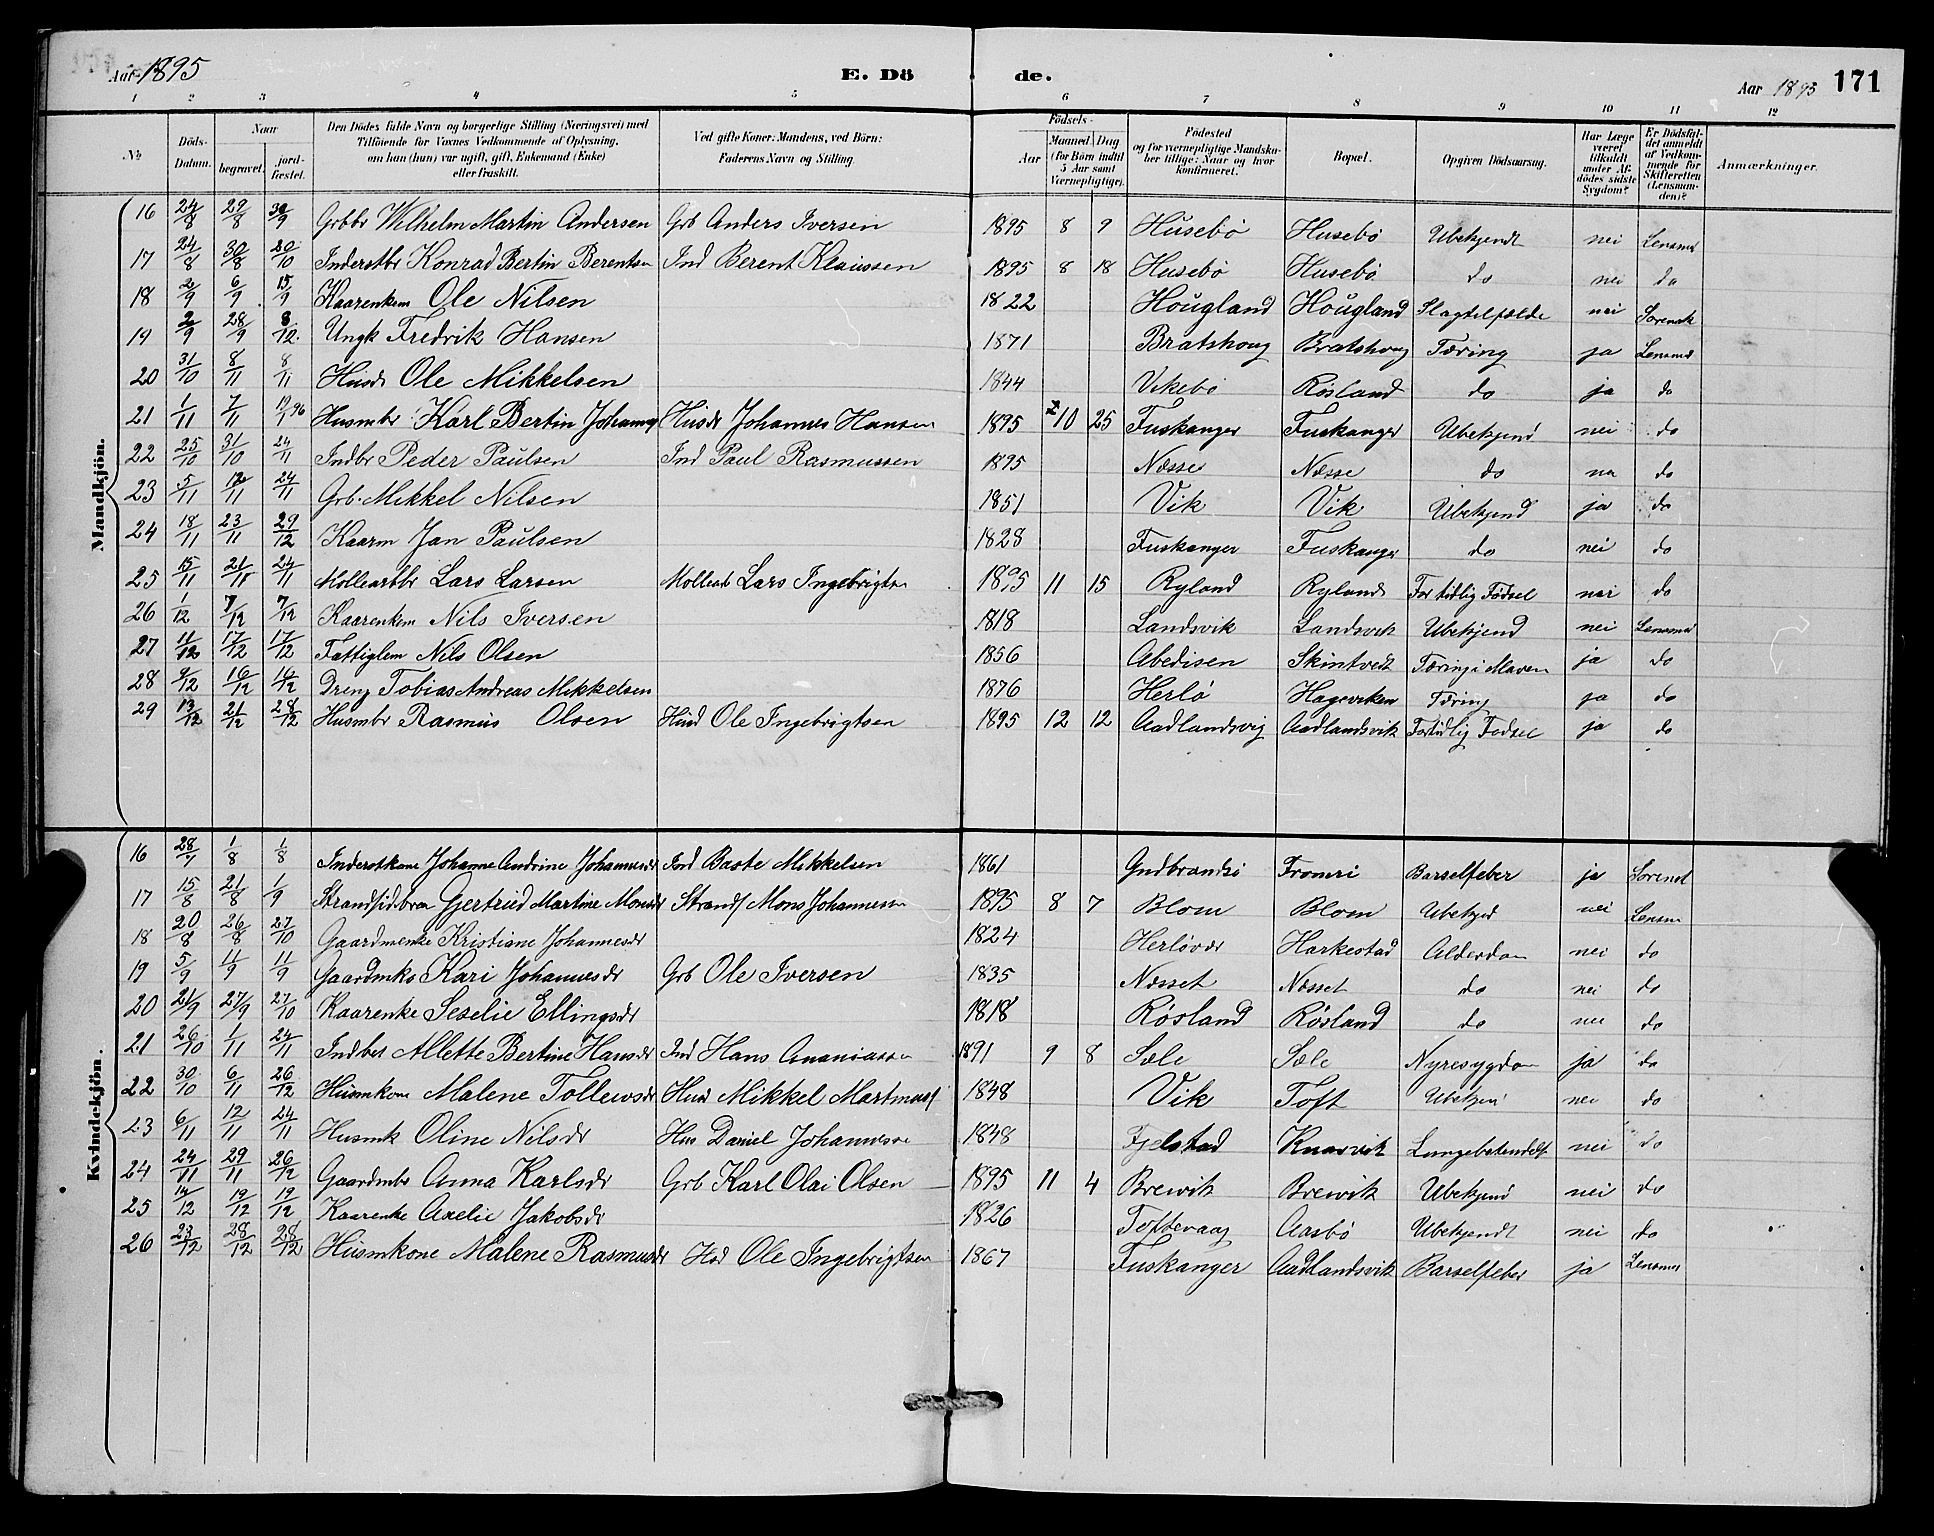 Aar 1895 E. Dö de. Aar 1895 171
1 2 3 4 5 6 7 8 9 10 11 12
No Döds-Datum. Naar begravet. jord-fæstet. Den Dödes fulde Navn og borgerlige Stilling (Næringsvei) med Tilföiende for Voxnes Vedkommende af Oplysning, om han (hun) var ugift, gift, Enkemand (Enke) eller fraskilt. Ved gifte Koner: Mandens, ved Börn: Faderens Navn og Stilling. Födsels- Aar Maaned Dag (for Börn indtil 5 Aar samt Værnepligtige). Födested og for værnepligtige Mandskaber tillige: Naar og hvor konfirmeret. Bopæl. Opgiven Dödsaarsag. Har Læge været tilkaldt under Afdödes sidste Sygdom? Er Dödsfaldet anmeldt af Vedkommende for Skifteretten (Lensmanden)? Anmærkninger.
Mandkjön.
16 24/8 29/8 30/9 Grbbr Wilhelm Martin Andersen Grb Anders Iversen 1895 8 9 Husebö Husebö Ubekjendt nei Lensmd
17 24/8 30/8 20/10 Inderstbr Konrad Bertin Berentsen Ind Berent Klaussen 1895 8 18 Husebö Husebö do nei do
18 2/9 6/9 15/9 Kaarenkem Ole Nilsen 1822 Hougland Hougland Slagtilfælde nei Sorensk
19 2/9 28/9 8/12 Ungk Fredrik Hansen 1871 Bratshoug Bratshoug Tæring ja Lensmd
20 31/10 8/11 8/11 Husd Ole Mikkelsen 1844 Vikebö Rösland do ja do
21 1/11 7/11 19/1 96 Husmbr Karl Bertin Johannes Husdr Johannes Hansen 1895 10 25 Fuskanger Fuskanger Ubekjend nei do
22 25/10 31/10 24/11 Indbr Peder Paulsen Ind Paul Rasmussen 1895 Næsse Næsse do nei do
23 5/11 12/11 24/11 Grb. Mikkel Nilsen 1851 Vik Vik Ubekjend ja do
24 18/11 23/11 29/12 Kaarm Jan Paulsen 1828 Fuskanger Fuskanger do nei do
25 15/11 21/11 24/11 Mollearbbr Lars Larsen Mollearb Lars Ingebrigtsn 1895 11 15 Ryland Ryland For tidlig Födsel nei do
26 1/12 7/12 7/12 Kaarenkem Nils Iversen 1818 Landsvik Landsvik Ubekjend nei Lensmd
27 11/12 17/12 17/12 Fattiglem Nils Olsen 1856 Abedisen Skintvedt Tæring i Maven ja do
28 9/12 16/12 16/12 Dreng Tobias Andreas Mikkelsen 1876 Herlö Hageviken Tæring ja do
29 13/12 21/12 28/12 Husmbr Rasmus Olsen Husd Ole Ingebrigtsen 1895 12 12 Aadlandsvig Aadlandsvik Fortidlig Fodsel ja do
Kvindekjön.
16 28/7 1/8 1/8 Inderstkone Johanne Andrine Johannesdr Ind Baste Mikkelsen 1861 Gudbrandsö Fromrei Barselfeber ja Sorensk
17 15/8 21/8 1/9 Strandsidebrn Gjertrud Martine Monsdr Strands Mons Johannessn 1895 8 7 Blom Blom Ubekjed nei Lensm
18 20/8 26/8 27/10 Gaardmenke Kristiane Johannesdr 1824 Herlövær Harkestad Alderdom nei do
19 5/9 11/9 11/9 Gaardmko Kari Johannesdr Grb Ole Iversen 1835 Næsset Næsset do nei do
20 21/9 27/9 27/10 Kaarenke Seselie Ellingsdr 1818 Rösland Rösland do nei do
21 26/10 1/11 24/11 Indbr Allette Bertine Hansdr Ind Hans Ananiassn 1891 9 8 Sæle Sæle Nyresygdom ja do
22 30/10 6/11 26/12 Husmkone Malene Tollewsdr Husd Mikkel Martinuss 1848 Vik Toft Ubekjen nei do
23 6/11 12/11 24/11 Husmk Oline Nilsdr Hus Daniel Johannessn 1848 Fjelstad Knarvik Lungebetendels nei do
24 24/11 29/11 26/12 Gaardmbr Anna Karlsdr Grb Karl Olai Olsen 1895 11 4 Brewik Brewik Ubekjend nei do
25 14/12 19/12 19/12 Kaarenke Axelie Jakobsdr 1826 Toftevaag Aasbö Ubekjendt nei do
26 23/12 28/12 28/12 Husmkone Malene Rasmusdr Hsd Ole Ingebrigtsen 1867 Fuskanger Aadlandsvik Barselfeber ja Lensmd